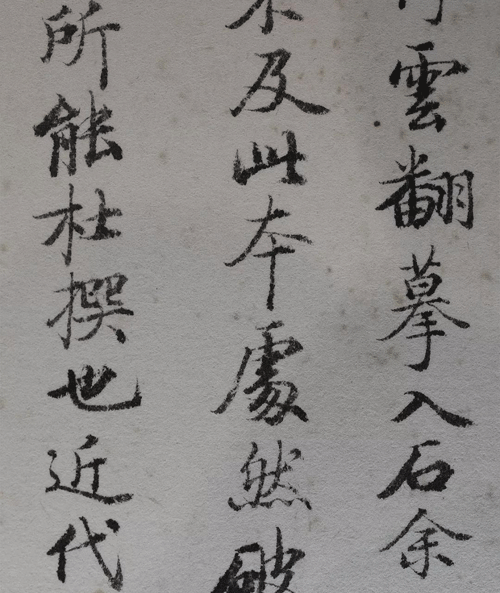 雲翻摹入石余
不及此本處然破
所能杜撰也近代